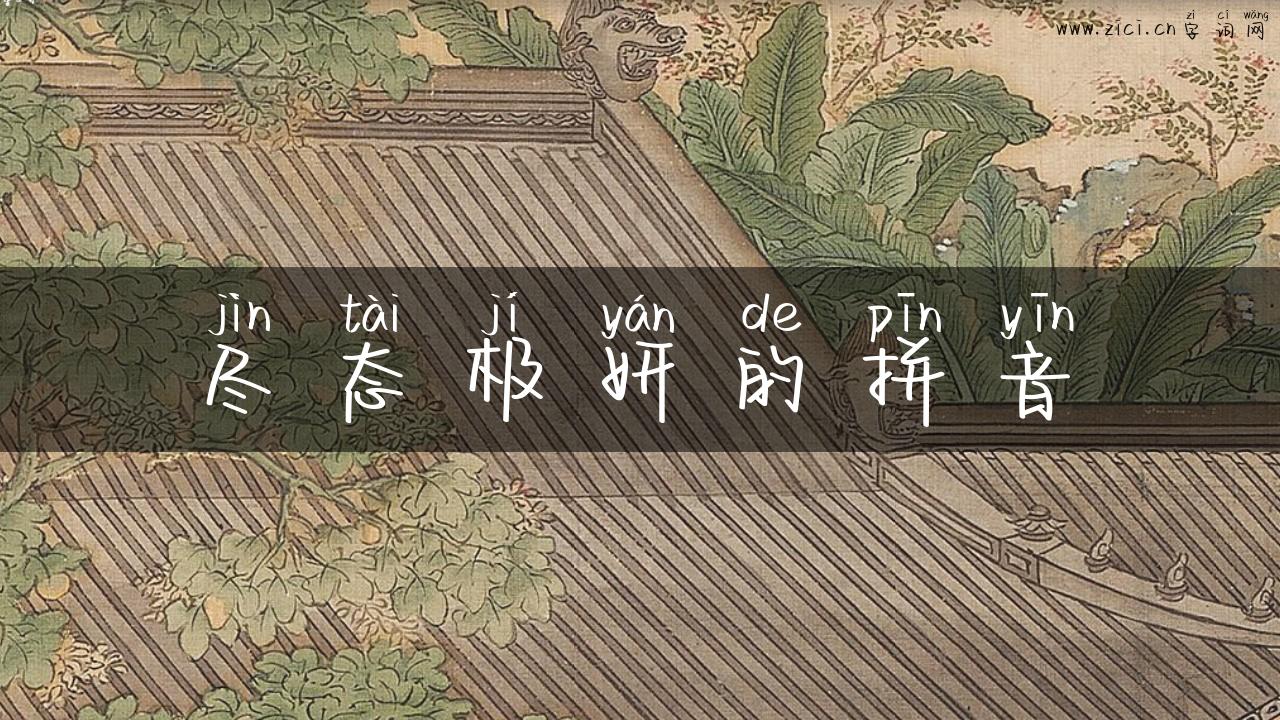 zì cí wǎng
www.zici.cn 字词网
jìn tài jí yán de pīn yīn
尽态极妍的拼音